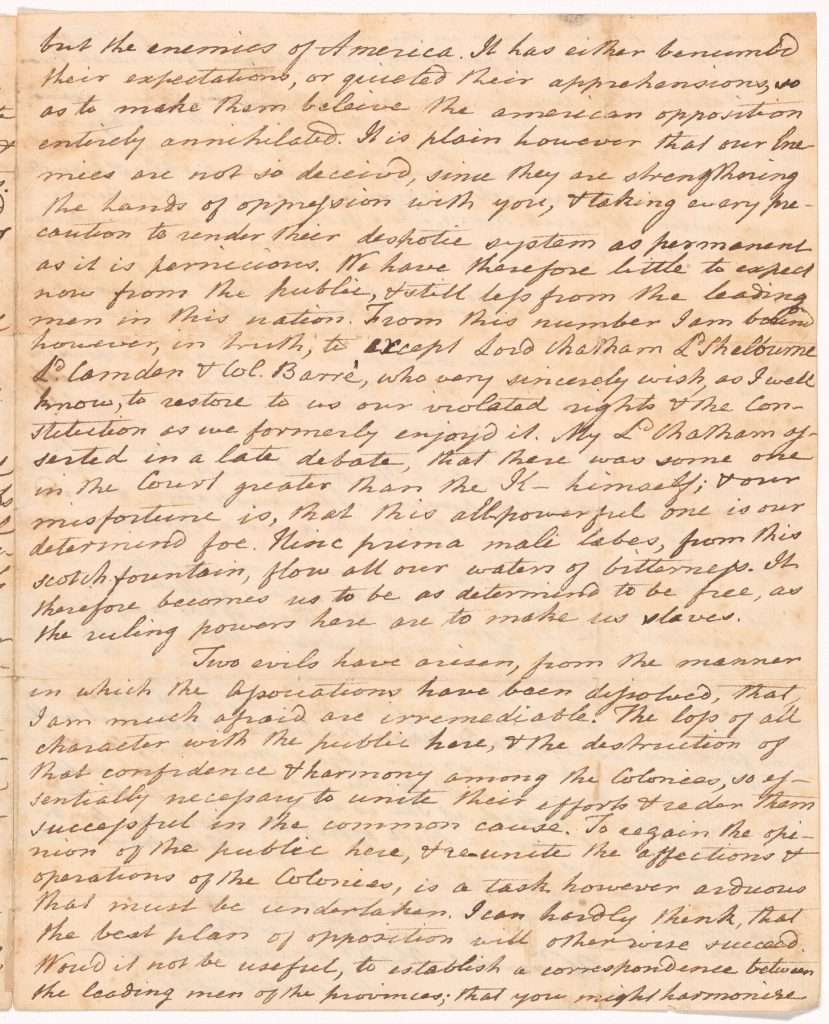 but the enemies of America. It has either benumb'd
their expectations, or quieted their apprehensions, so
as to make them beleive the american opposition
entirely annihilated. It is plain however that our Ene-
mies are not so deceiv'd, since they are strengthening
the hands of oppression with you, & taking every pre-
caution to render their despotic system as permanent
as it is pernicious. We have therefore little to expect
now from the public, & still less from the leading
men in this nation. From this number I am bound
however, in truth, to except Lord Chatham Ld. Shelburne
Ld. Camden & Col. Barré, who very sincerely wish, as I well
know, to restore to us our violated rights & the Con-
stitution as we formerly enjoy'd it. My Ld. Chatham as-
serted in a late debate, that there was some one
in the Court greater than the K— himself; & our
misfortune is, that this allpowerful one is our
determind foe. Hinc prima mali labes, from this
scotch fountain, flow all our waters of bitterness. It
therefore becomes us to be as determind to be free, as
the ruling powers here are to make us slaves.
Two evils have arisen, from the manner
in which the Associations have been dissolved, that
I am much afraid are irremediable. The loss of all
character with the public here, & the destruction of
that confidence & harmony among the Colonies, so es-
sentially necessary to unite their efforts & reder them
successful in the common cause. To regain the opi-
nion of the public here, & re-unite the affections &
operations of the Colonies, is a task however arduous
that must be undertaken. I can hardly think, that
the best plan of opposition will otherwise succeed.
Woud it not be useful, to establish a correspondence between
the leading men of the provinces; that you might harmonise